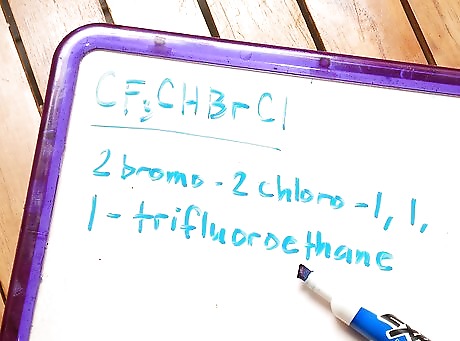 CF₃CHBrCl
2 bromo - 2 chloro - 1, 1,
1 - trifluoroethane